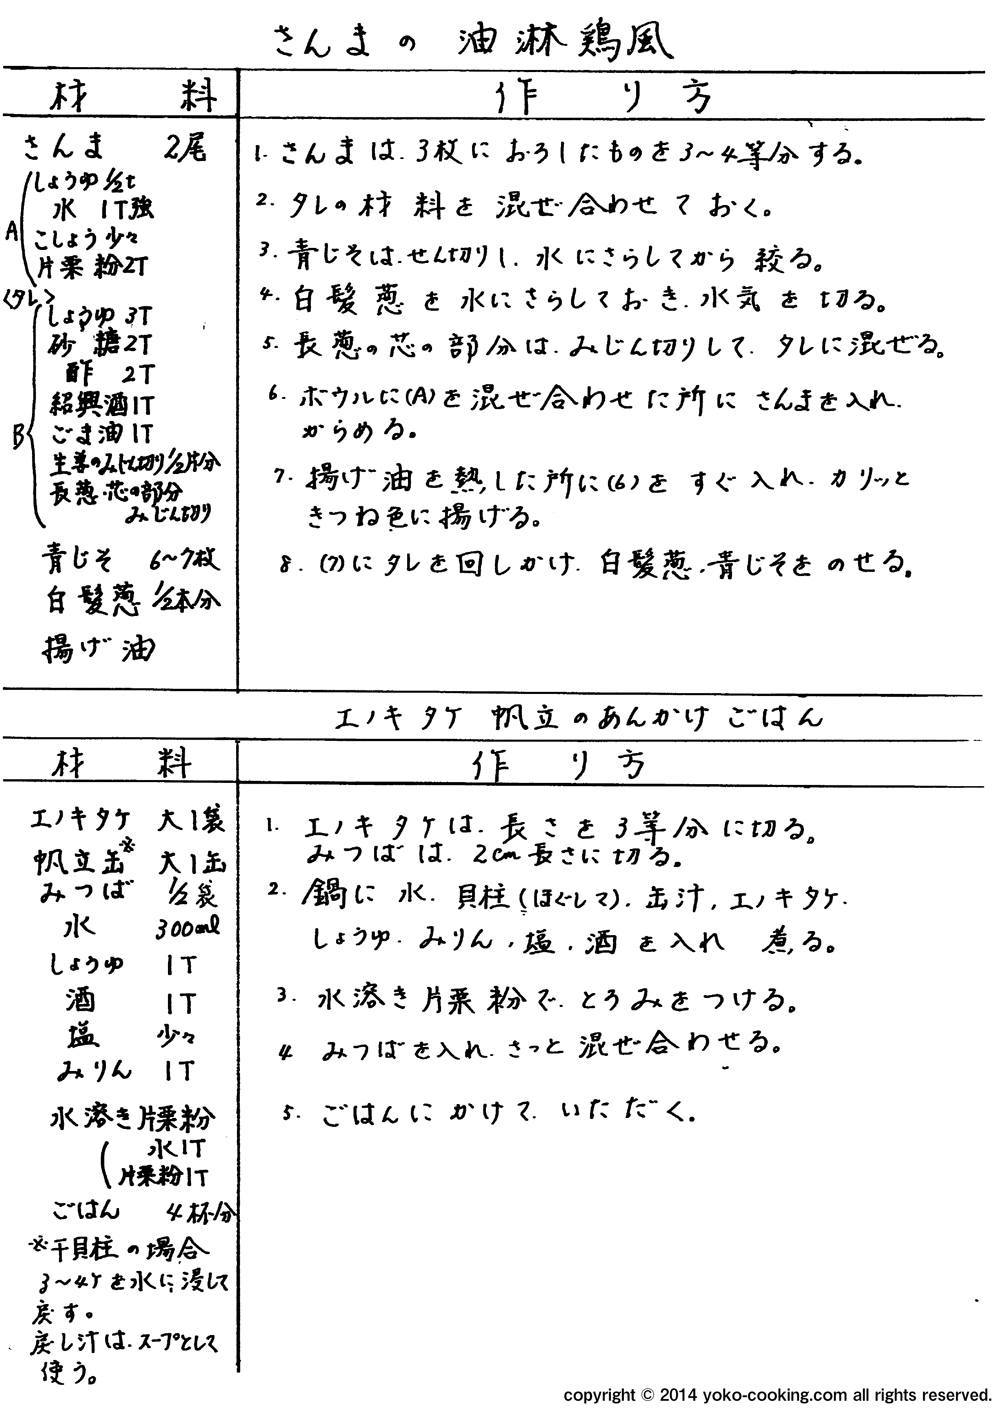 さんまの 油淋鶏風
材 料
作 り 方
さんま 2尾
A
しょうゆ 1/2t
水 1T強
こしょう 少々
片栗粉2T
<タレ>
B
しょうゆ 3T
砂糖2T
酢 2T
紹興酒1T
ごま油1T
生姜のみじん切り1/2片分
長葱・芯の部分
みじん切り
青じそ 6〜7枚
白髪葱 1/2本分
揚げ油
1. さんまは、3枚におろしたものを3〜4等分する。
2. タレの材料を混ぜ合わせておく。
3. 青じそは、せん切りし、水にさらしてから絞る。
4. 白髪葱を水にさらしておき、水気を切る。
5. 長葱の芯の部分は、みじん切りして、タレに混ぜる。
6. ボウルに(A)を混ぜ合わせた所にさんまを入れ、
からめる。
7. 揚げ油を熱した所に(6)をすぐ入れ、カリッと
きつね色に揚げる。
8. (7)にタレを回しかけ、白髪葱、青じそをのせる。
エノキタケ 帆立のあんかけごはん
材 料
作 り 方
エノキタケ 大1袋
帆立缶※ 大1缶
みつば 1/2袋
水 300ml
しょうゆ 1T
酒 1T
塩 少々
みりん 1T
水溶き片栗粉
水1T
片栗粉1T
ごはん 4杯分
※干貝柱の場合
3〜4ケを水に浸して
戻す。
戻し汁は、スープとして
使う。
1. エノキタケは、長さを3等分に切る。
みつばは、2cm長さに切る。
2. 鍋に水、貝柱(ほぐして)、缶汁、エノキタケ、
しょうゆ、みりん、塩、酒を入れ 煮る。
3. 水溶き片栗粉で、とろみをつける。
4 みつばを入れ、さっと混ぜ合わせる。
5. ごはんにかけて、いただく。
copyright © 2014 yoko-cooking.com all rights reserved.